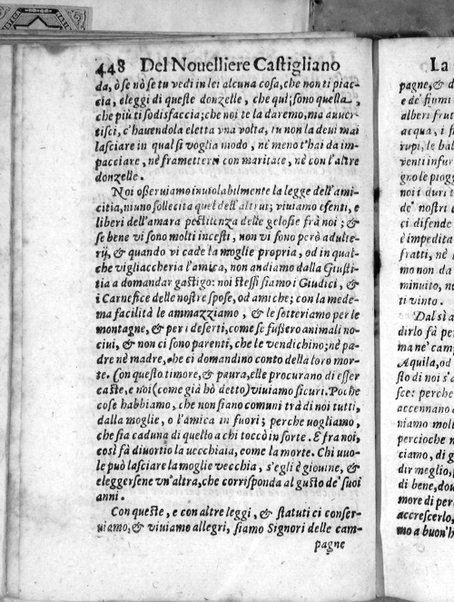 448 Del Nouelliere Castigliano
da, ò se nò se tu vedi in lei alcuna cosa, che non ti piac-
cia, eleggi di queste donzelle, che qui; sono quella,
che più ti sodisfaccia; che noi te la daremo, ma auuer-
tisci, c'hauendola eletta vna volta, tu non la deui mai
lasciare in qual si voglia modo, nè meno t'hai da im-
pacciare, nè framettersi con maritate, nè con l'altre
donzelle.
Noi osseruiamo inuiolabilmente la legge dell'ami-
citia, niuno sollecita quel dell'altrui; viuiamo esenti, e
liberi dell'amara pestilenza delle gelosie frà noi; &
se bene vi sono molti incesti, non vi sono però adulte-
rij, & quando vi cade la moglie propria, od in qual-
che vigliaccheria l'amica, non andiamo dalla Giusti-
tia a domandar gastigo: noi stessi siamo i Giudici, &
i Carnefice delle nostre spose, od amiche; con la mede-
ma facilità le ammazziamo, & le sotteriamo per le
montagne, & per i deserti, come se fussero animali no-
ciui, & non ci sono parenti, che le vendichino; nè pa-
dre nè madre, che ci domandino conto della loro mor-
te. Con questo timore, & paura, elle procurano di esser
caste, e noi (come già hò detto) viuiamo sicuri. Poche
cose habbiamo, che non siano communi trà di noi tutti,
dalla moglie, o l'amica in fuori; perche vogliamo,
che sia caduna di quello a chi toccò in sorte. E fra noi,
così fà diuortio la vecchiaia, come la morte. Chi vuo-
le può lasciare la moglie vecchia, s'egli è giouine, &
eleggersene vn'altra, che corrisponda al gusto de' suoi
anni.
Con queste, e con altre leggi, & statuti ci conser-
uiamo, & viuiamo allegri, siamo Signori delle cam-
pagne
La
pagne, &
e de' fiumi
alberi frut
acqua, i f
rupi, le bal
venti infur
gno le piogg
noi i duri t
de' nostri c
ci difende
è impedita
fratti, nè l
mo non da
minuito, no
ti vinto.
Dal sì a
dirlo fà pe
ma ne' camp
Aquila, od
sto di noi s'a
sce: perche
accennano a
niamo moll
percioche n
ciamo, di g
dir meglio,
di bene, dou
more di per
accrescerlo,
mo a buon'h